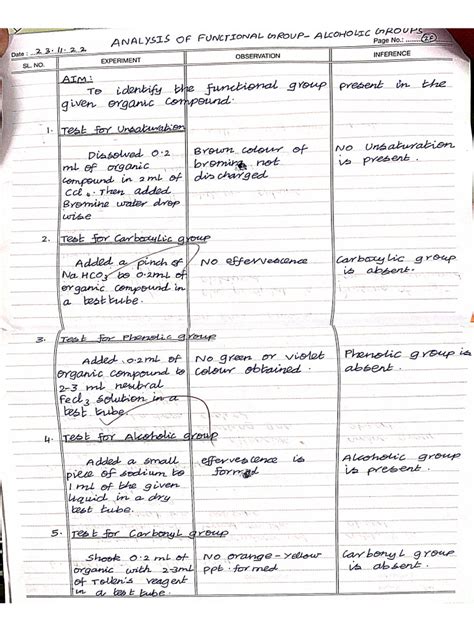 ANALYSIS OF FUNCTIONAL GROUP - ALCOHOLIC GROUPS
Date : 23.11.22
Page No.:
SL. NO. EXPERIMENT OBSERVATION INFERENCE
AIM:
To identify the functional group present in the
given organic compound.
1. Test for Unsaturation
Dissolved 0.2 Brown colour of No Unsaturation
ml of organic bromine not is present.
compound in 2ml of discharged
CCl4. Then added
Bromine water drop
wise
2. Test for Carboxylic group
Added a pinch of No effervescence Carboxylic group
NaHCO3 to 0.2ml of is absent.
organic compound in
a test tube.
3. Test for Phenolic group
Added 0.2ml of No green or violet Phenolic group is
organic compound to colour obtained. absent.
2-3 ml neutral
FeCl3 solution in a
test tube.
4. Test for Alcoholic group
Added a small effervescence is Alcoholic group
piece of sodium to formed is present.
1 ml of the given
liquid in a dry
test tube.
5. Test for Carbonyl group
Shook 0.2 ml of No orange-yellow Carbonyl group
organic with 2-3ml ppt. formed is absent.
of Tollen's reagent
in a test tube.